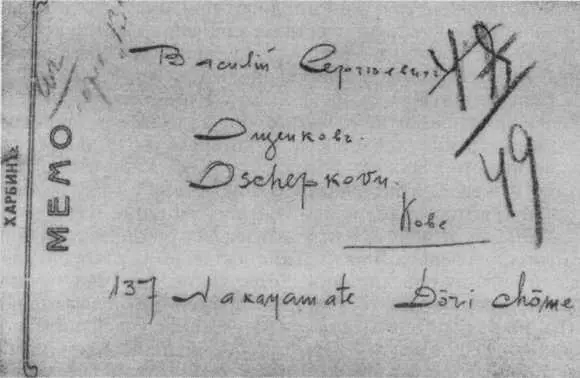 ХАРБИНЪ
МЕМО
Василій Сергѣевичъ
Ощепковъ.
Oschepkovu.
Кобе
137 Nakayamate Dōri chōme
49